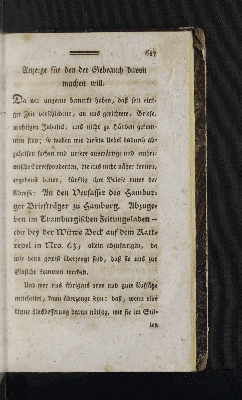 687
Anzeige für den der Gebrauch davon
machen will.
Da wir ungerne bemerkt haben, daß seit eini-
ger Zeit verschiedene, an uns gerichtete, Briefe,
wichtigen Inhalts, uns nicht zu Händen gekom-
men sind; so wollen wir diesem Uebel dadurch ab-
zuhelfen suchen und unsere auswärtige und einhei-
mische Correspondenten, die uns nicht näher kennen,
ergebenst bitten, künftig ihre Briefe unter der
Adresse: An den Verfasser des Hambur-
ger Briefträger zu Hamburg. Abzuge-
ben im Tramburgischen Zeitungsladen —
oder bey der Witwe Bock auf dem Katt-
repel in Nro. 63, allein abzusenden, da
wir denn gewiß überzeugt sind, daß sie uns zur
Einsicht kommen werden.
Und wer uns übrigens neue und gute Aufsätze
mittheilet, kann überzeugt seyn: daß, wenn eine
kleine Ausbesserung daran nöthig, wir sie im Stil-
len